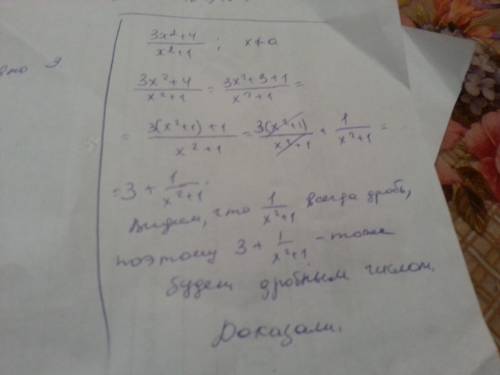 вно 9
(3x²+4)/(x²+1) ; x≠0
(3x²+4)/(x²+1) = (3x²+3+1)/(x²+1) =
= (3(x²+1)+1)/(x²+1) = 3(x²+1)/(x²+1) + 1/(x²+1) =
= 3 + 1/(x²+1).
Видим, что 1/(x²+1) всегда дробь,
поэтому 3 + 1/(x²+1) – тоже
будет дробным числом.
Доказали.